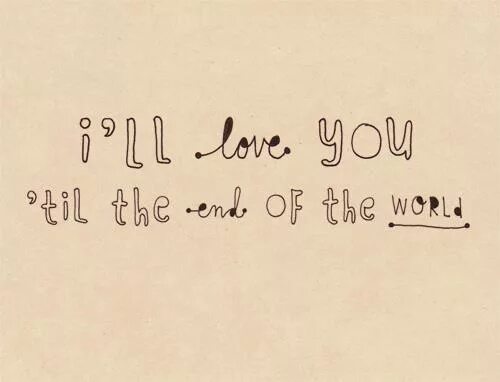 i'll love YOU
'til the end OF the WORLd